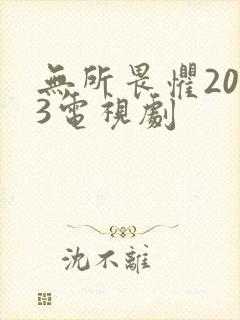 無所畏懼20
3電視劇
沈不離